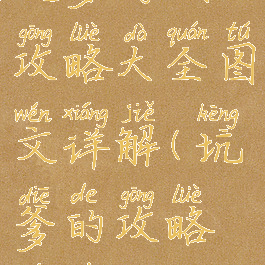 gōng lüè dà quán tú
攻略大全图
wén xiáng jiě kēng
文详解(坑
diē de gōng lüè
爹的攻略